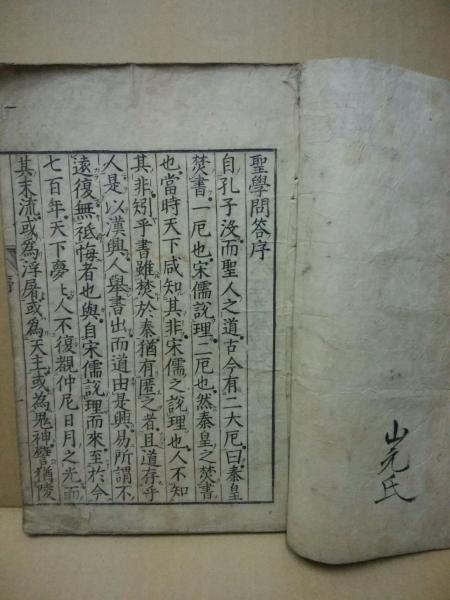 山元氏
聖學問答序
自孔子沒而聖人之道古今有二大厄曰秦皇
焚書一厄也宋儒說理二厄也然秦皇之焚書
也當時天下咸知其非宋儒之說理也人不知
其非矧乎書雖焚於秦猶有匿之者且道存乎
人是以漢興人舉書出而道由是興易所謂不
遠復無祗悔者也與自宋儒說理而來至於今
七百年天下夢〻人不復觀仲尼日月之光而
其末流或為浮屠或為天主或為鬼神譬猶陵